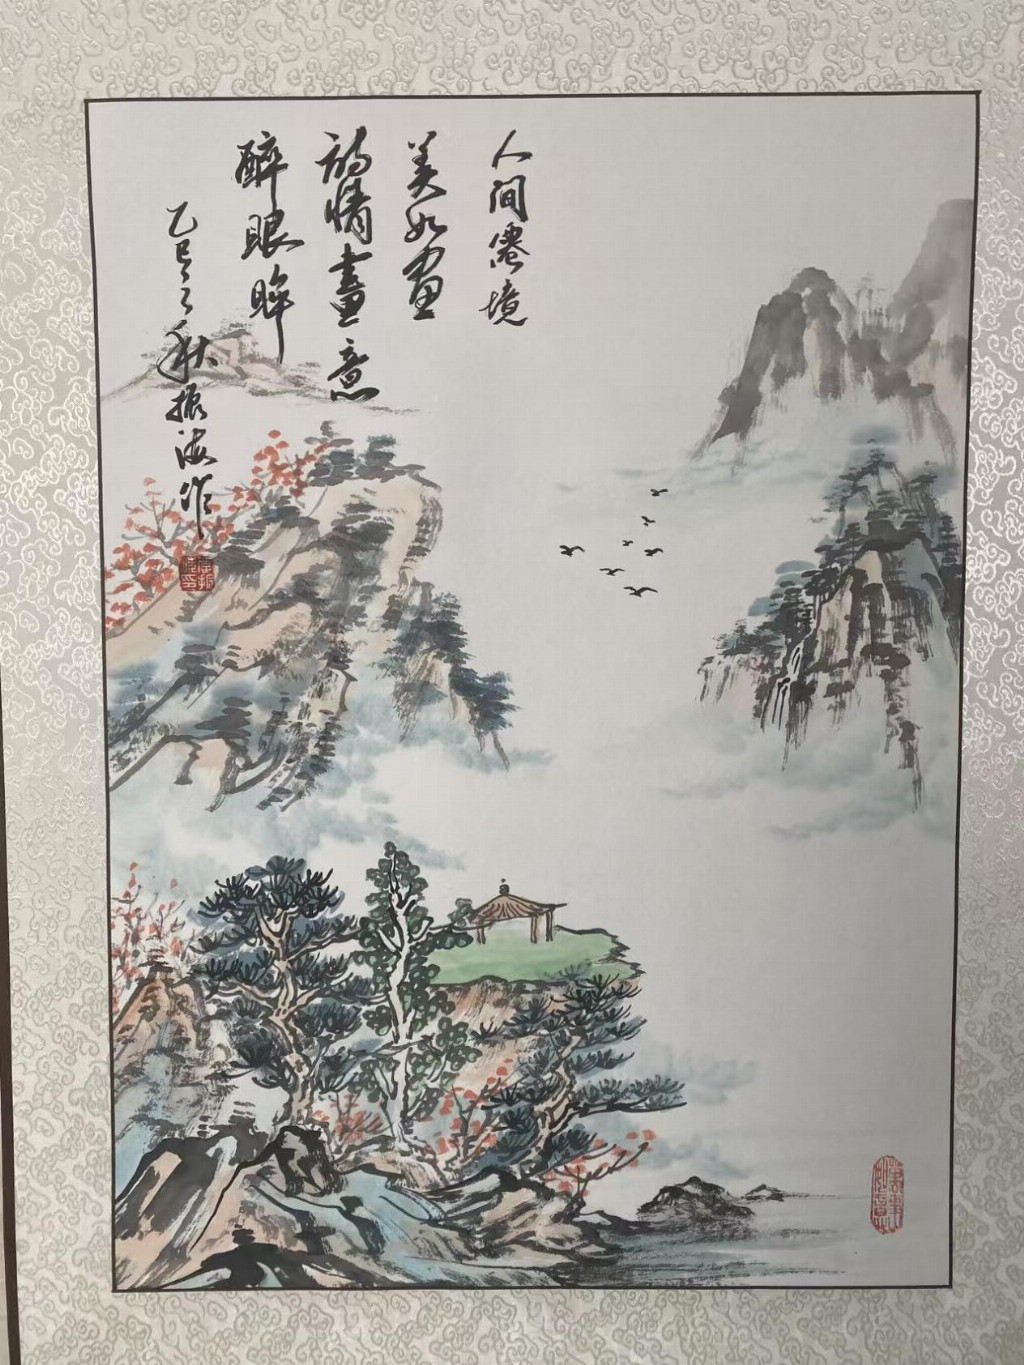 人间仙境
美如画
诗情畫意
醉眼眸
乙巳之秋振海作